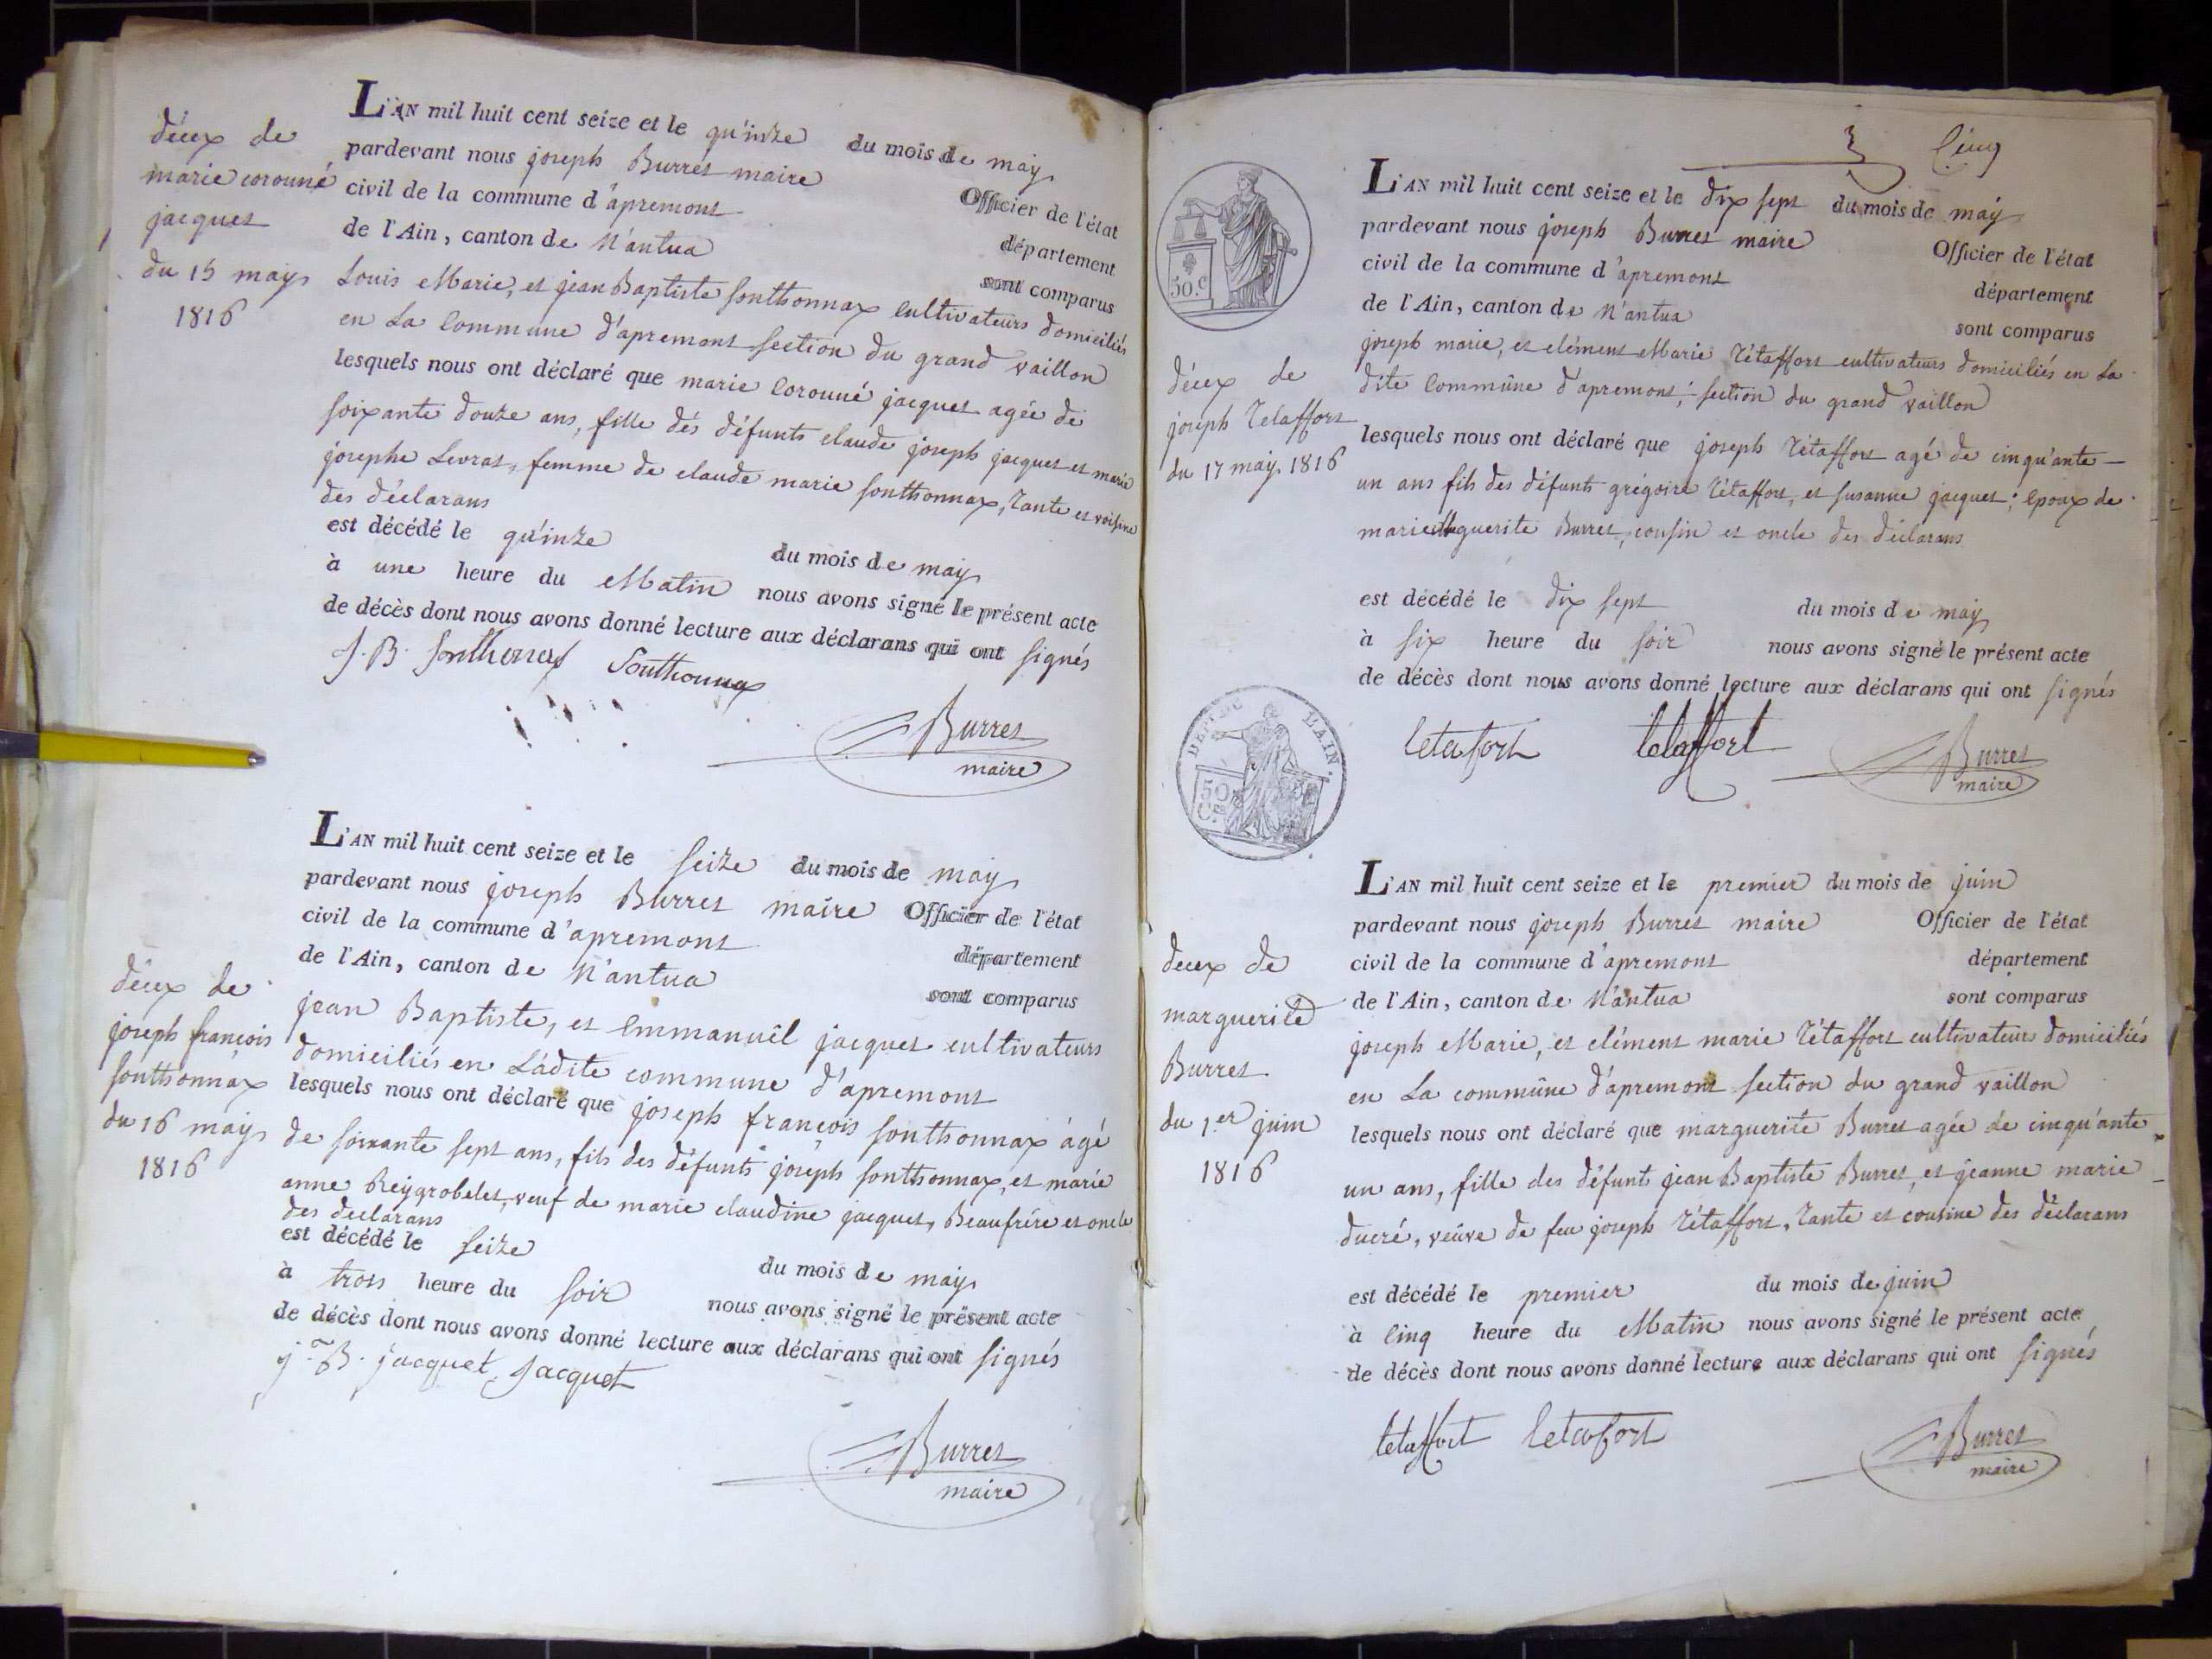 décex de
marie corounné
jacquet
du 15 may
1816
L'AN mil huit cent seize et le qu'inze du mois de may
pardevant nous joseph Burret maire Officier de l'état
civil de la commune d'apremont département
de l'Ain, canton de N'antua sont comparus
Louis Marie, et jean Baptiste sonthonnax cultivateurs domiciliés
en La Commune d'apremont section du grand vaillon
lesquels nous ont déclaré que marie Corounné jacquet agée de
soixante douze ans, fille dés défunts claude joseph jacquet et marie
josephe Levrat, femme de claude marie sonthonnax, tante et voisine
des déclarans
est décédé le qu'inze du mois de may
à une heure du Matin nous avons signé le présent acte
de décès dont nous avons donné lecture aux déclarans qui ont signés
J. B. Sonthonax Sonthonnax
Burret
maire
décex de
joseph françois
sonthonnax
du 16 may
1816
L'AN mil huit cent seize et le seize du mois de may
pardevant nous joseph Burret maire Officier de l'état
civil de la commune d'apremont département
de l'Ain, canton de N'antua sont comparus
jean Baptiste, et Emmanuël jacquet cultivateurs
domiciliés en Ladite commune d'apremont
lesquels nous ont déclaré que joseph françois sonthonnax âgé
de soixante sept ans, fils des défunts joseph sonthonnax, et marie
anne Reygrobelet, veuf de marie claudine jacquet, Beaufrére et oncle
des declarans
est décédé le seize du mois de may
à trois heure du soir nous avons signé le présent acte
de décès dont nous avons donné lecture aux déclarans qui ont signés
j. B. jacquet Jacquet
Burret
maire
3 Cinq
50.c
décex de
joseph Tétaffort
du 17 may 1816
L'AN mil huit cent seize et le dix sept du mois de may
pardevant nous joseph Burret maire Officier de l'état
civil de la commune d'apremont département
de l'Ain, canton de N'antua sont comparus
joseph marie, et clément Marie Tétaffort cultivateurs domiciliés en La
dite Commûne d'apremont, section du grand vaillon
lesquels nous ont déclaré que joseph Tétaffort agé de cinqu'ante
un ans fils des défunts grégoire Tétaffort, et susanne jacquet; Epoux de
marie Marguerite Burret, cousin et oncle des déclarans
est décédé le dix sept du mois de may
à six heure du soir nous avons signé le présent acte
de décès dont nous avons donné lecture aux déclarans qui ont signés
letafort letaffort
Burret
maire
L'AIN.
50
decex de
marguerite
Burret
du 1.er juin
1816
L'AN mil huit cent seize et le premier du mois de juin
pardevant nous joseph Burret maire Officier de l'état
civil de la commune d'apremont département
de l'Ain, canton de N'antua sont comparus
joseph Marie, et clément marie Tétaffort cultivateurs domiciliés
en La commûne d'apremont section du grand vaillon
lesquels nous ont déclaré que marguerite Burret agée de cinqu'ante
un ans, fille des défunts jean Baptiste Burret, et jeanne marie
ducré, veûve de feu joseph Tétaffort, tante et cousine des déclarans
est décédé le premier du mois de juin
à Cinq heure du Matin nous avons signé le présent acte
de décès dont nous avons donné lecture aux déclarans qui ont signés
letaffort letafort
Burret
maire